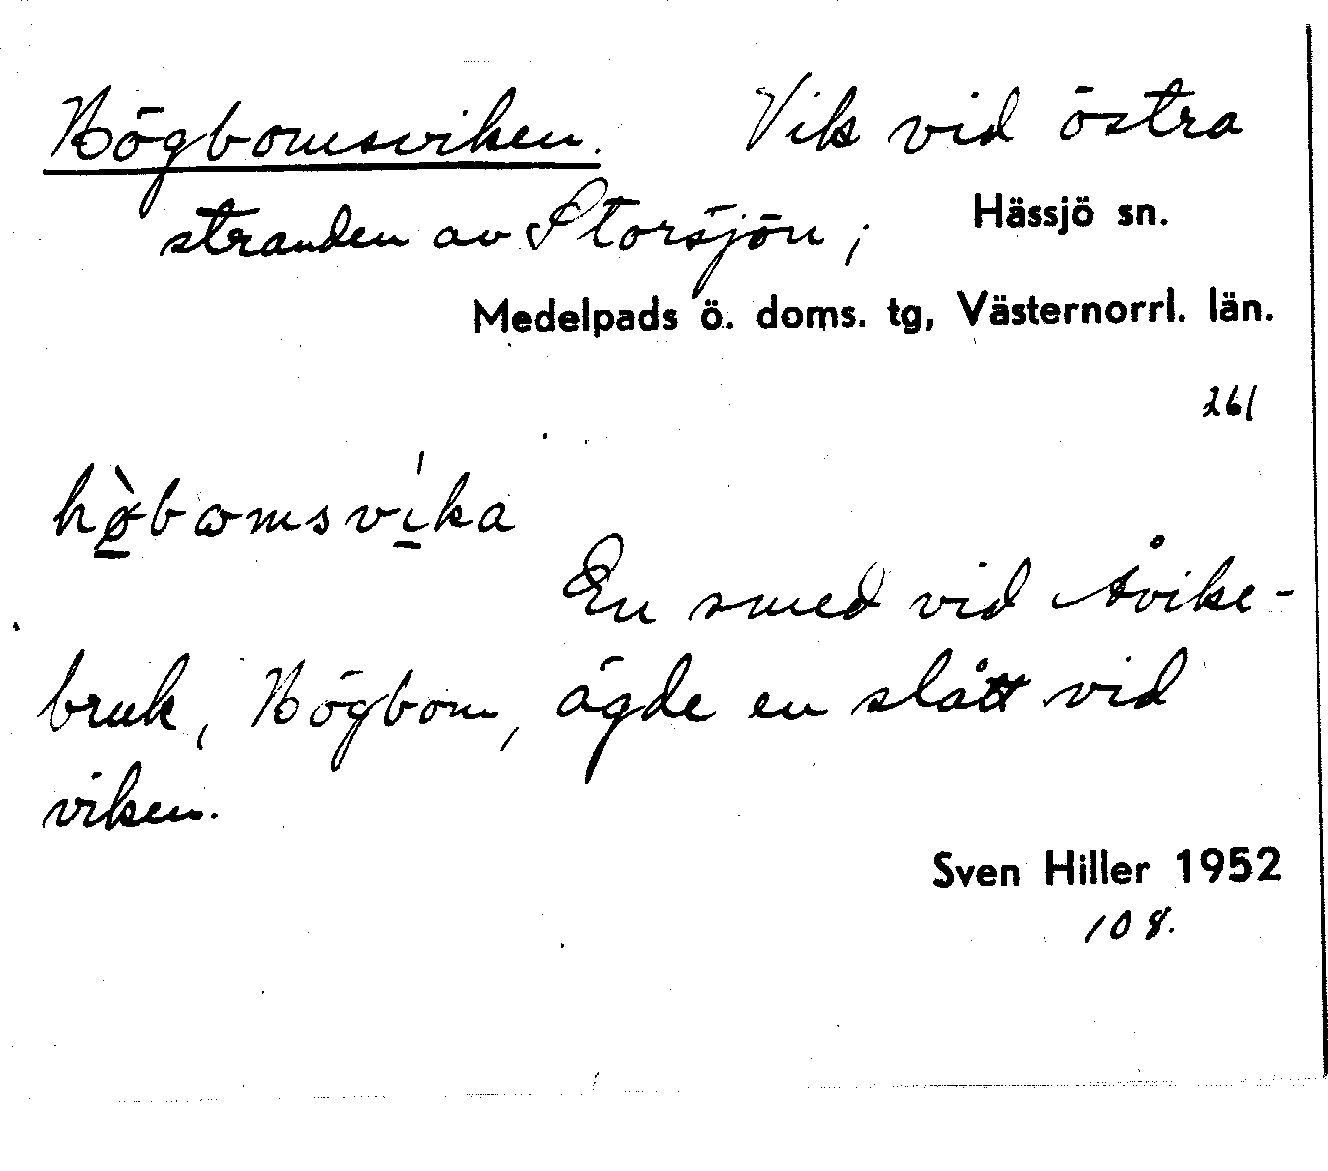 Högbomsviken. Vik vid östra
stranden av Storsjön; Hässjö sn.
Medelpads ö. doms. tg, Västernorrl. län.
261
hø̀bωmsvi̍ka
En smed vid Åvike-
bruk, Högbom, ägde en slått vid
viken.
Sven Hiller 1952
108.